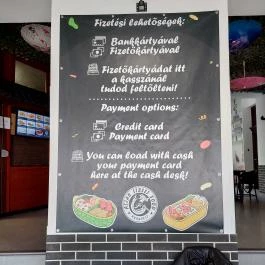 Fizetési lehetőségek:
Bankkártyával
Fizetőkártyával
Fizetőkártyádat itt
a kasszánál
tudod feltölteni!
Payment options:
Credit card
Payment card
You can load with cash
your payment card
here at the cash desk!